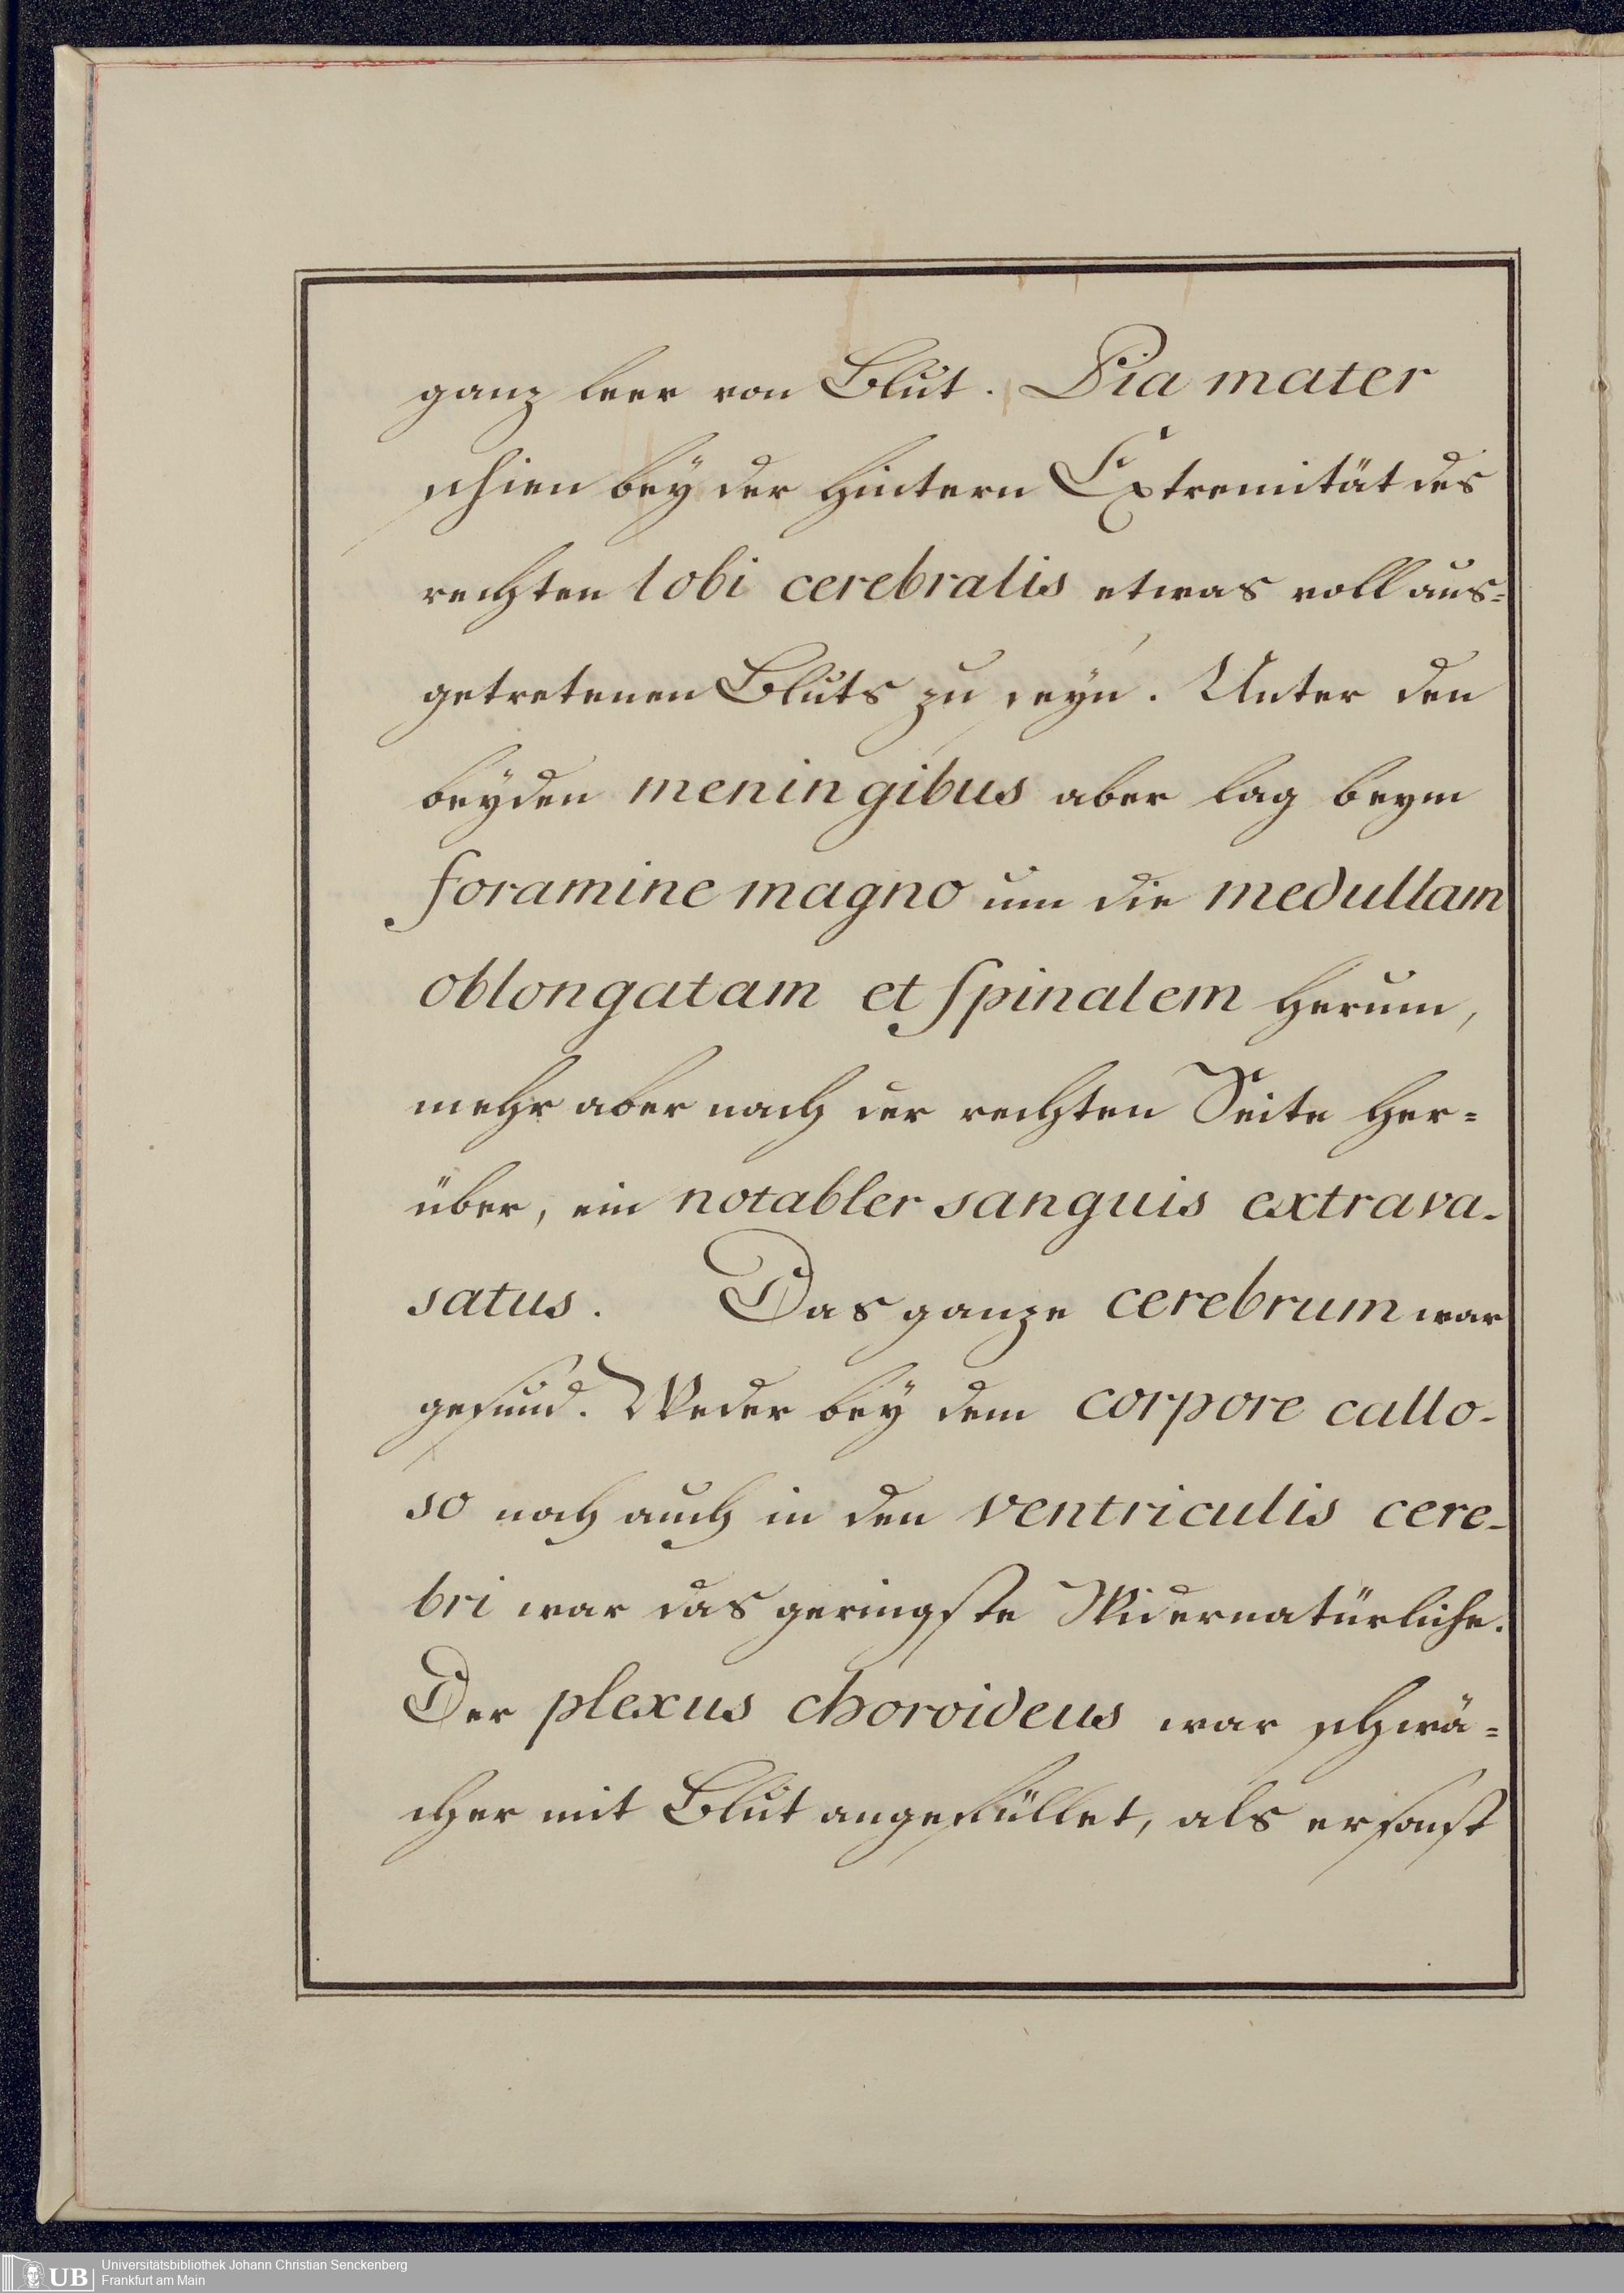 ganz leer von Blut. Pia mater
schien bey der hintern Extremität des
rechten lobi cerebralis etwas voll aus=
getretenen Bluts zu seyn. Unter den
beyden meningibus aber lag beym
foramine magno um die medullam
oblongatam et spinalem herum,
mehr aber nach der rechten Seite her=
über, ein notabler sanguis extrava-
satus. Das ganze cerebrum war
gesund. Weder bey dem corpore callo-
so noch auch in den ventriculis cere-
bri war das geringste Widernatürliche.
Der plexus choroideus war schwä=
cher mit Blut angefüllet, als er sonst
UB Universitätsbibliothek Johann Christian Senckenberg
Frankfurt am Main